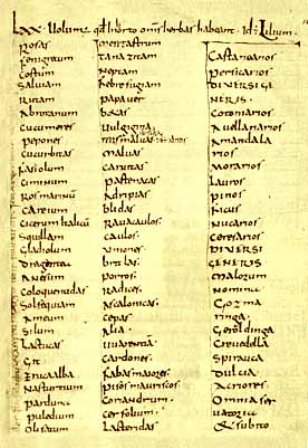 Lxx. Uolumꝰ qđ inhorto omīs herbas habeant. Id ē Lilium.
Rosas
Fenigrecum
Costum
Saluiam
Rutam
Abrotanum
Cucumeres
Pepones
Cucurbitas
Fasiolum
Ciminum
Rosmarinū
Careium
Cicerum italicū
Squillam
Gladiolum
Dragantea
Anesum
Coloquentidas
Solsequiam
Ameum
Silum
Lactucas
Git
Erucaalba
Nasturtium
Parduna
Puledium
Olisatum
Mentastrum
Tanazitam
Neptam
Febrefugiam
Papauer
Betas
Uulgigina
Mismaluas
Maluas
Caruitas
Pastenacas
Adripias
Blidas
Rauacaulos
Caulos
Uniones
Britlas
Porros
Radices
Ascalonicas
Cepas
Alia
Uuarentiā
Cardones
Fabas maiores
Pisos mauriscos
Coriandrum
Cerfolium
Lacteridas
Castanearios
Persicarios
DIUERSI GE
NERIS
Cotoniarios
Auellanarios
Amandala
rios
Morarios
Lauros
Pinos
Ficus
Nucarios
Ceresarios
DIUERSI
GENERIS
Malorum
Nomina
Gozma
ringa
Geroldinga
Creuedella
Spirauca
Dulcia
Acriores
Omnia ser
uatoria
& subito